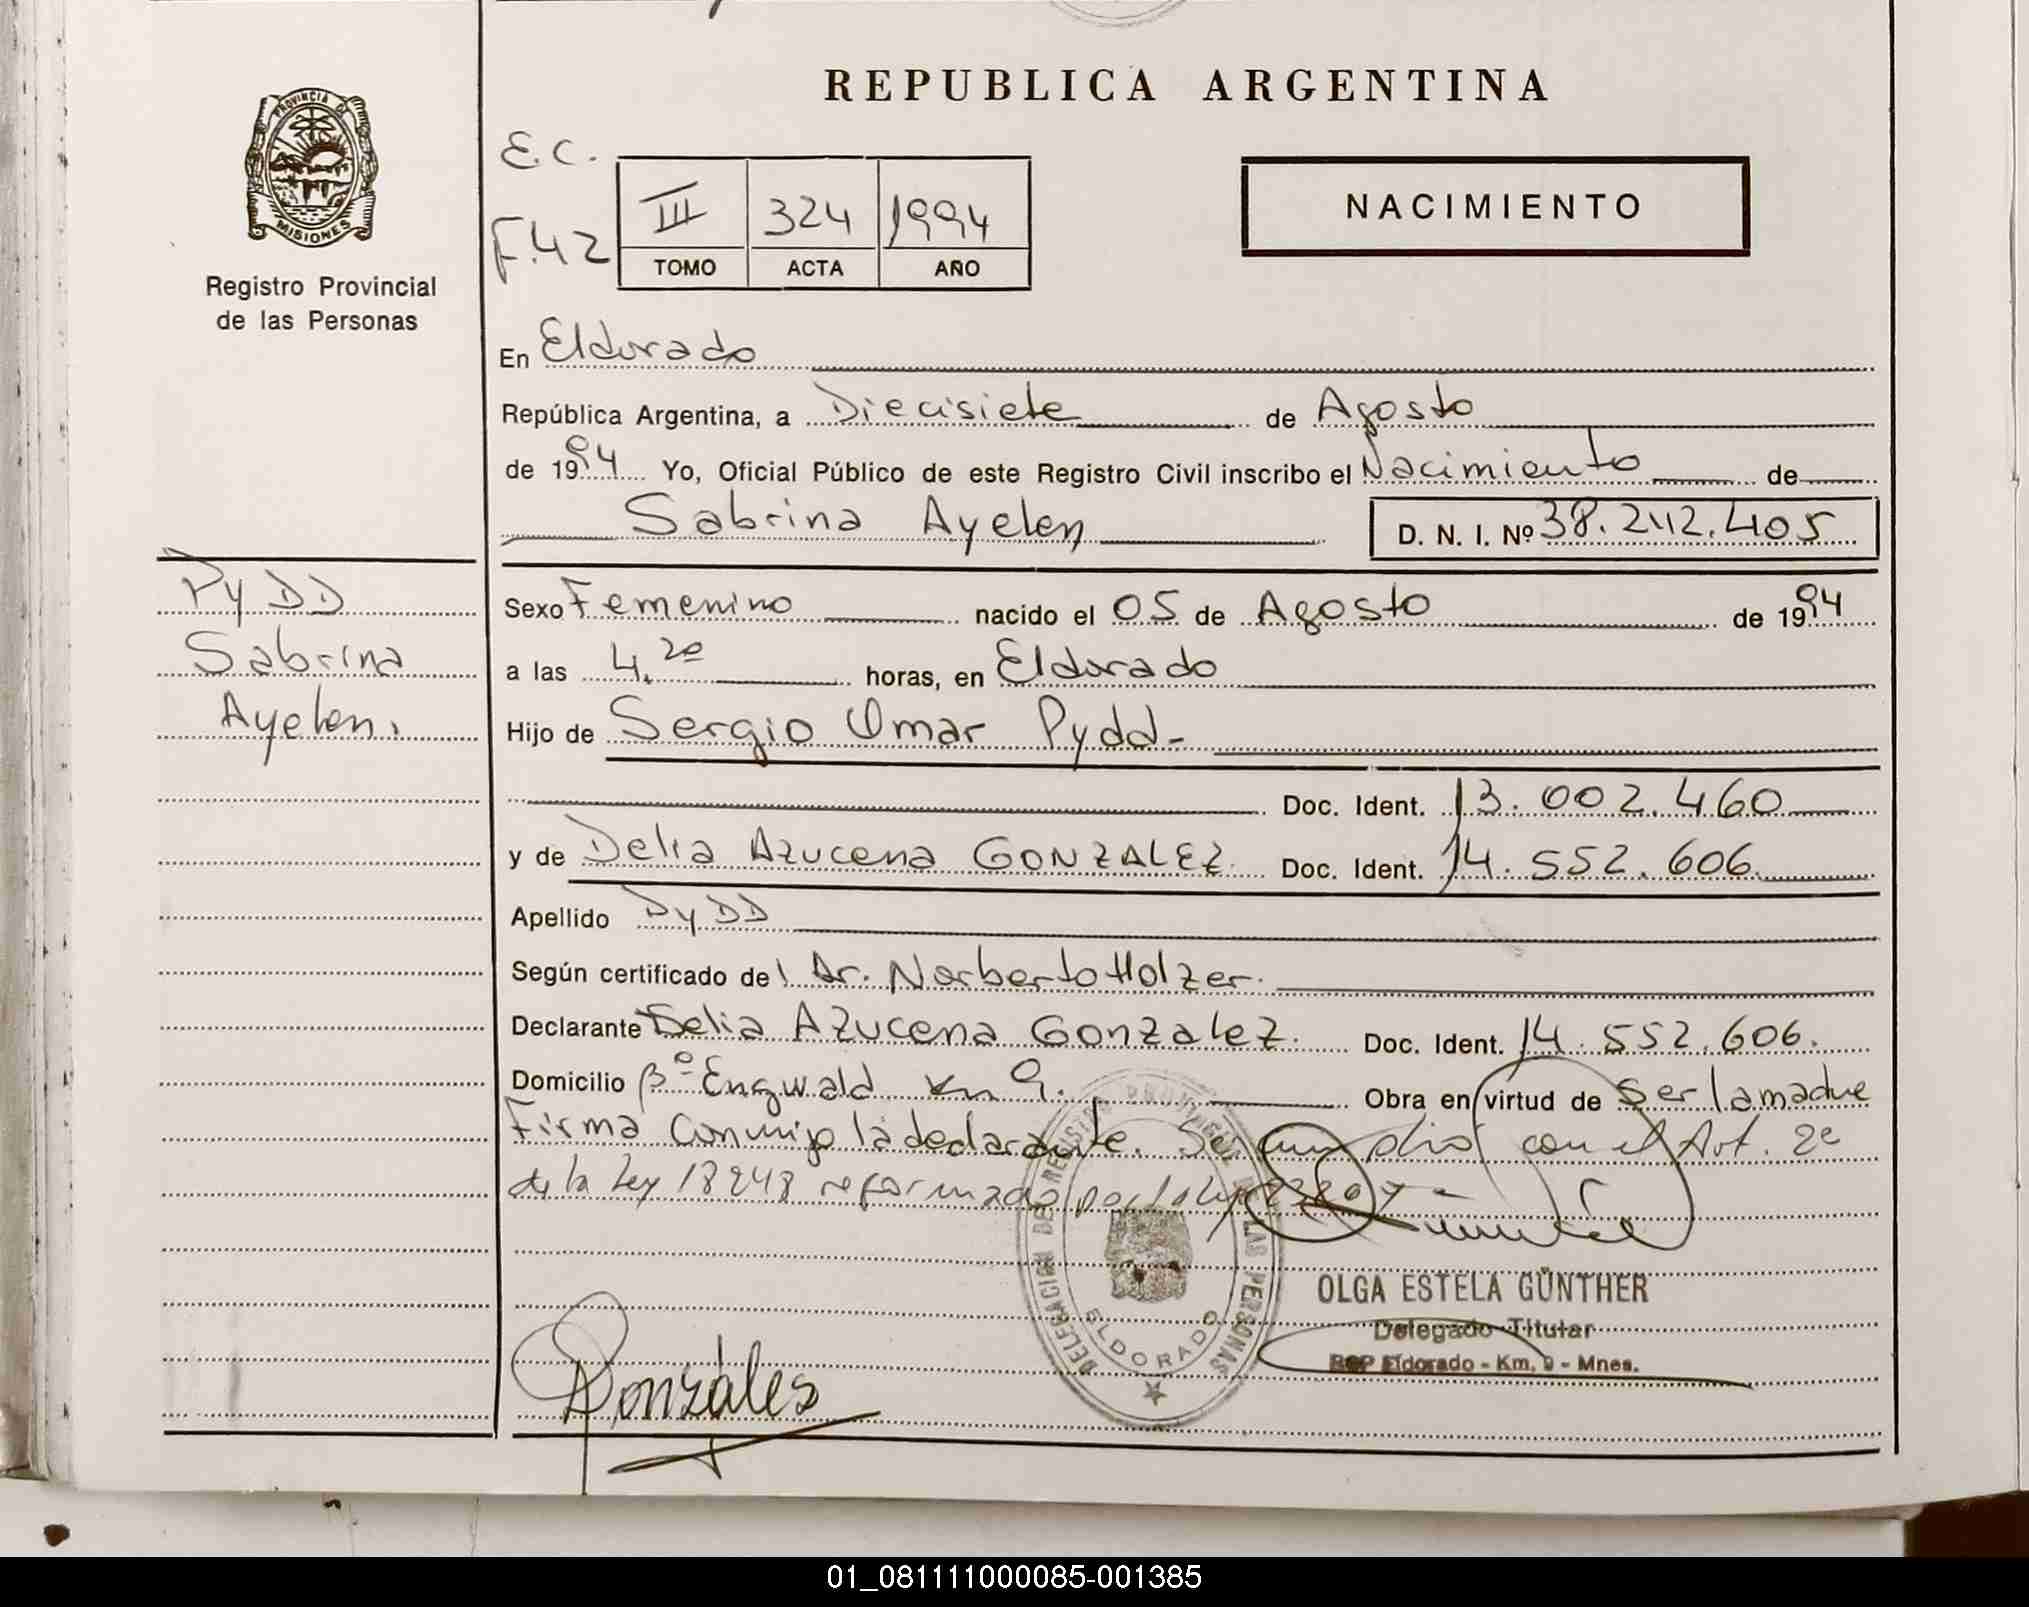 REPUBLICA ARGENTINA
PROVINCIA DE
MISIONES
Registro Provincial
de las Personas
E.C.
F.42
III 324 1994
TOMO ACTA AÑO
NACIMIENTO
En Eldorado
República Argentina, a Diecisiete de Agosto
de 1994 Yo, Oficial Público de este Registro Civil inscribo el Nacimiento de
Sabrina Ayelen D. N. I. Nº 38.242.405
PyDD
Sabrina
Ayelen.
Sexo Femenino nacido el 05 de Agosto de 1994
a las 4.20 horas, en Eldorado
Hijo de Sergio Omar Pydd-
Doc. Ident. 13.002.460
y de Delia Azucena GONZALEZ. Doc. Ident. 14.552.606.
Apellido PyDD
Según certificado del Dr. Norberto Holzer.
Declarante Delia Azucena Gonzalez. Doc. Ident. 14.552.606.
Domicilio Bº Engwald Km 9. Obra en virtud de Ser la madre
Firma conmigo la declarante. Se cumplió con el Art. 2º
de la Ley 18248 reformado por la Ley
DELEGACION DEL REGISTRO PROVINCIAL DE LAS PERSONAS
ELDORADO
OLGA ESTELA GÜNTHER
Delegado Titular
RPP Eldorado - Km. 9 - Mnes.
Gonzáles
01_081111000085-001385